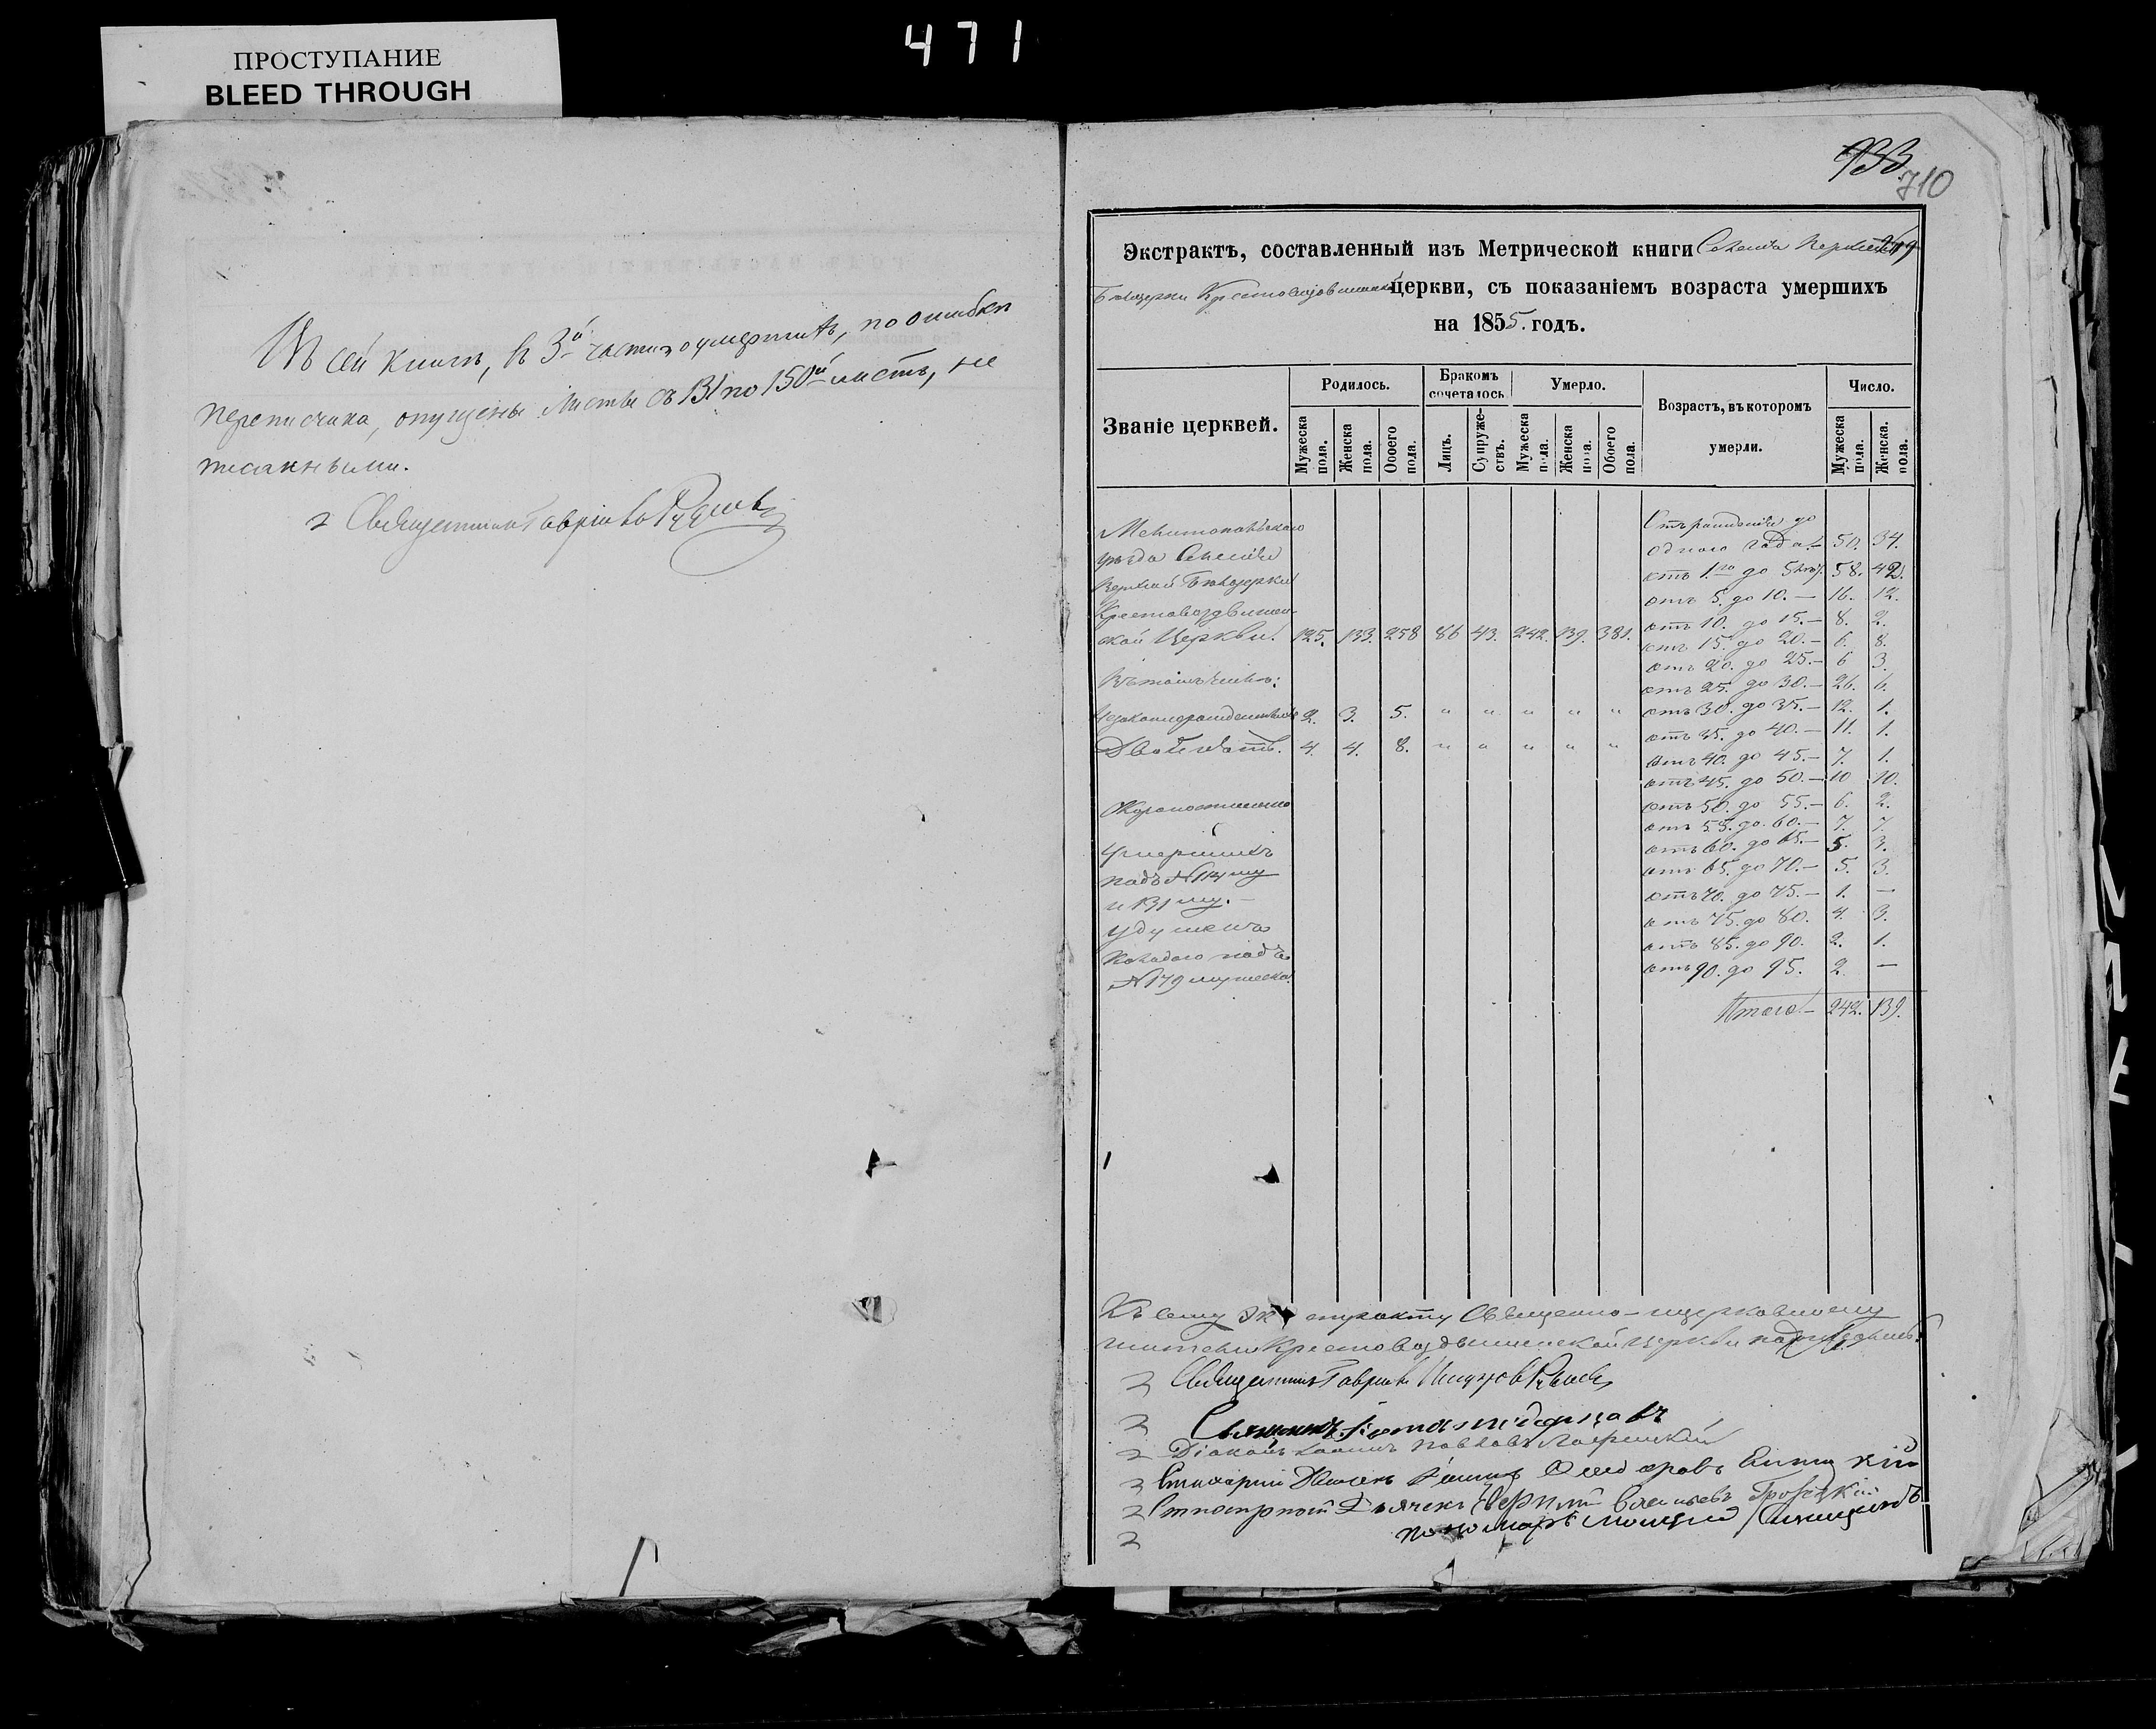 ПРОСТУПАНИЕ
BLEED THROUGH
471
Въ сей книгѣ, въ 3й части о умершихъ, по ошибкѣ
переписчика, опущены листы съ 131 по 150й листъ, не
писанными.
Священникъ Гавріилъ
933
710
Экстрактъ, составленный изъ Метрической книги Селенія Верхней
Бѣлозерки Крестовоздвиженской церкви, съ показаніемъ возраста умершихъ
на 1855. годъ.
Званіе церквей.
Родилось.
Бракомъ сочеталось
Умерло.
Возрастъ, въ которомъ умерли.
Число.
Мужеска пола.
Женска пола.
Обоего пола.
Лицъ.
Супружествъ.
Мужеска пола
Женска пола.
Обоего пола.
Мужеска пола.
Женска. пола.
Мелитопольскаго
уѣзда Селенія
Верхней Бѣлозерки
Крестовоздвижен-
ской Церкви. 125. 133. 258 86 43. 242. 139. 381.
Въ томъ числѣ:
Незаконнорожденныхъ 2. 3. 5. " " " " "
Двойнятъ. 4. 4. 8. " " " " "
Скоропостижно
Умершихъ
подъ №
и 131 му. —
подъ
№ 179 мужеска.
Отъ рожденія до
одного года — 50. 34.
отъ 1го до 5 58. 42.
отъ 5. до 10. — 16. 12.
отъ 10. до 15. — 8. 2.
отъ 15. до 20. — 6. 8.
отъ 20. до 25. — 6 3.
отъ 25. до 30. — 26. 6.
отъ 30. до 35. — 12. 1.
отъ 35. до 40. — 11. 1.
отъ 40. до 45. — 7. 1.
отъ 45. до 50. — 10 10.
отъ 50. до 55. — 6. 2.
отъ 55. до 60. — 7. 7.
отъ 60. до 65. — 5. 3.
отъ 65. до 70. — 5. 3.
отъ 70. до 75. — 1. —
отъ 75. до 80. 4. 3.
отъ 85. до 90. 2. 1.
отъ 90. до 95. 2. —
Итого — 242. 139.
Къ сему экстракту Священно-церковнослу
жители Крестовоздвиженской церкви подписались:
Священникъ Гавріилъ
Священникъ
Діаконъ Павловъ
Дьячекъ
Дьячекъ Васильевъ
пономарь